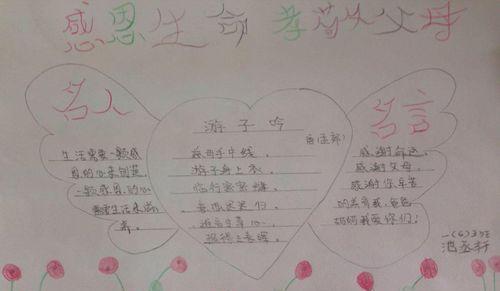 感恩生命 孝敬父母
名人
名言
游子吟
唐(孟郊)
慈母手中线,
游子身上衣。
临行密密缝,
意恐迟迟归。
谁言寸草心,
报得三春晖。
生活需要一颗感
恩的心来创造,
一颗感恩的心
需要生活来滋
养。
感谢命运,
感谢父母,
感谢你辛苦
的去
妈妈我爱你们!
一(6)班